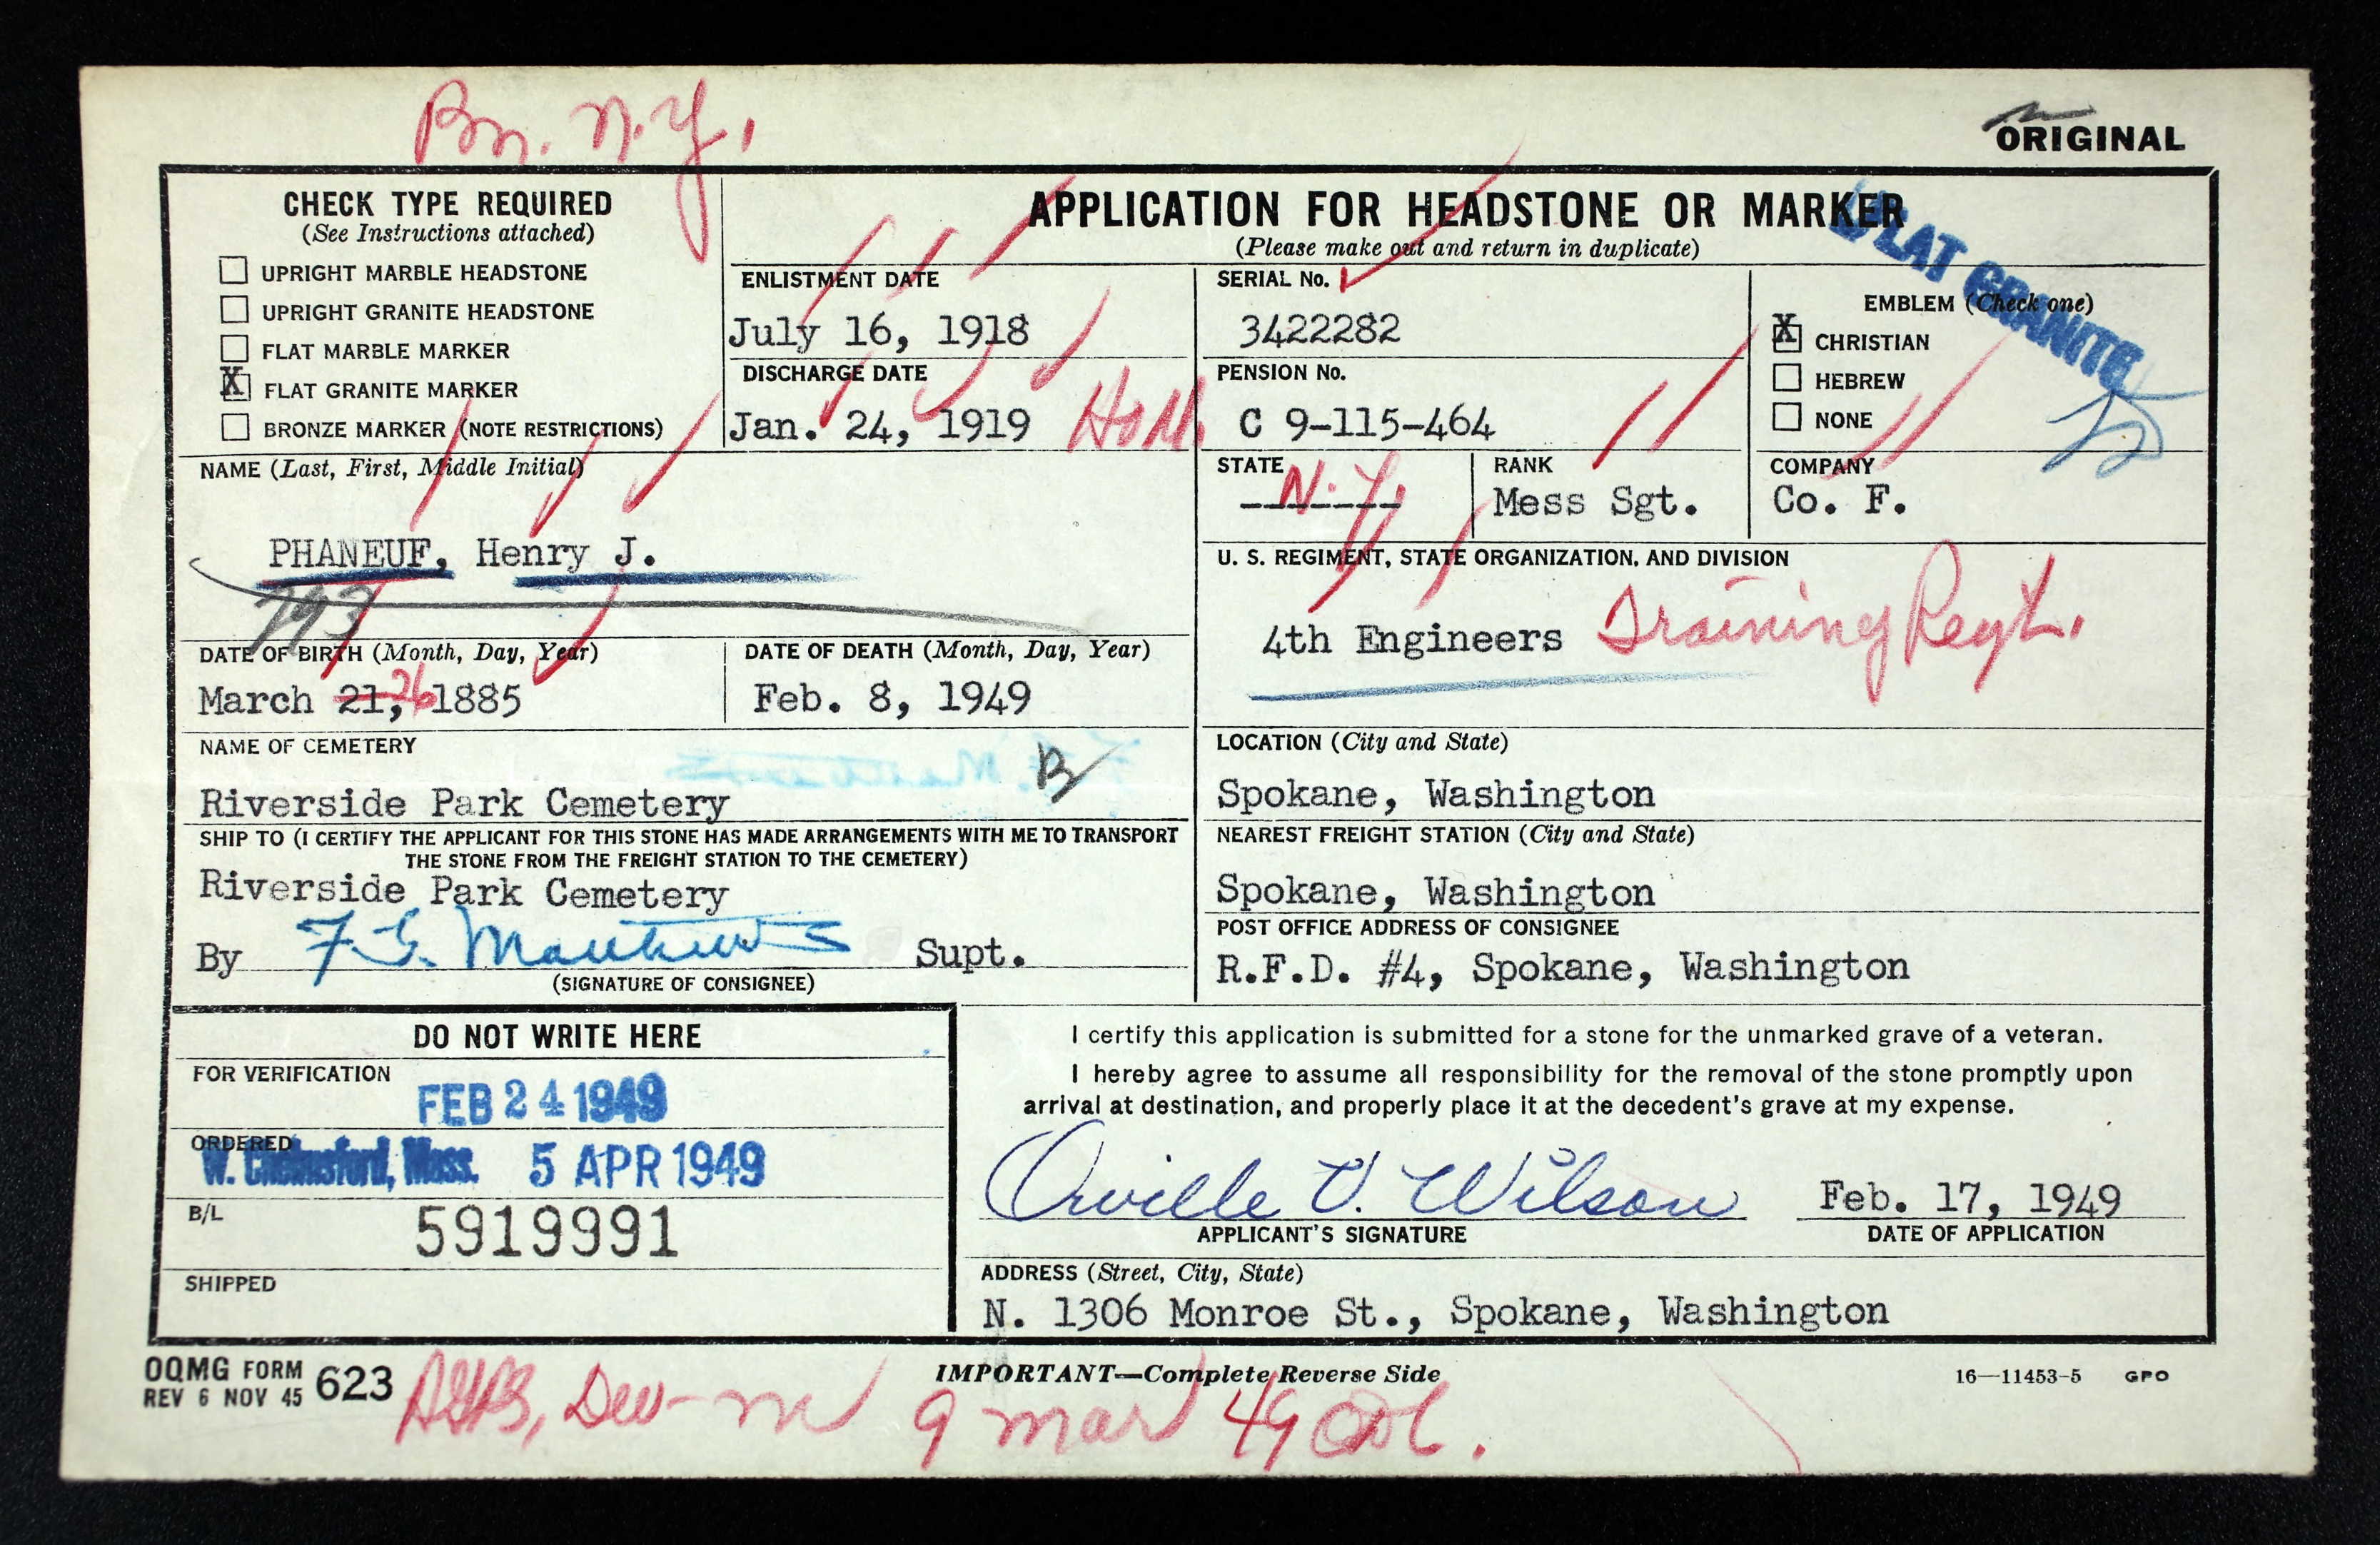 Bn. N.Y.
ORIGINAL
CHECK TYPE REQUIRED
(See Instructions attached)
UPRIGHT MARBLE HEADSTONE
UPRIGHT GRANITE HEADSTONE
FLAT MARBLE MARKER
X FLAT GRANITE MARKER
BRONZE MARKER (NOTE RESTRICTIONS)
APPLICATION FOR HEADSTONE OR MARKER
(Please make out and return in duplicate)
FLAT GRANITE
ENLISTMENT DATE
July 16, 1918
DISCHARGE DATE
Jan. 24, 1919
SERIAL No.
3422282
PENSION No.
C 9-115-464
EMBLEM (Check one)
X CHRISTIAN
HEBREW
NONE
NAME (Last, First, Middle Initial)
PHANEUF, Henry J.
793
STATE
N.Y.
RANK
Mess Sgt.
COMPANY
Co. F.
U. S. REGIMENT, STATE ORGANIZATION, AND DIVISION
4th Engineers Training Regt.
DATE OF BIRTH (Month, Day, Year)
March 21, 26 1885
DATE OF DEATH (Month, Day, Year)
Feb. 8, 1949
NAME OF CEMETERY
B
Riverside Park Cemetery
LOCATION (City and State)
Spokane, Washington
SHIP TO (I CERTIFY THE APPLICANT FOR THIS STONE HAS MADE ARRANGEMENTS WITH ME TO TRANSPORT
THE STONE FROM THE FREIGHT STATION TO THE CEMETERY)
Riverside Park Cemetery
NEAREST FREIGHT STATION (City and State)
Spokane, Washington
By Supt.
(SIGNATURE OF CONSIGNEE)
POST OFFICE ADDRESS OF CONSIGNEE
R.F.D. #4, Spokane, Washington
DO NOT WRITE HERE
FOR VERIFICATION
FEB 24 1949
ORDERED
W. Chelmsford, Mass. 5 APR 1949
B/L
5919991
SHIPPED
I certify this application is submitted for a stone for the unmarked grave of a veteran.
I hereby agree to assume all responsibility for the removal of the stone promptly upon
arrival at destination, and properly place it at the decedent's grave at my expense.
Orville V. Wilson Feb. 17, 1949
APPLICANT'S SIGNATURE DATE OF APPLICATION
ADDRESS (Street, City, State)
N. 1306 Monroe St., Spokane, Washington
OQMG FORM 623
REV 6 NOV 45
IMPORTANT—Complete Reverse Side
16—11453-5 GPO
9 mar 49